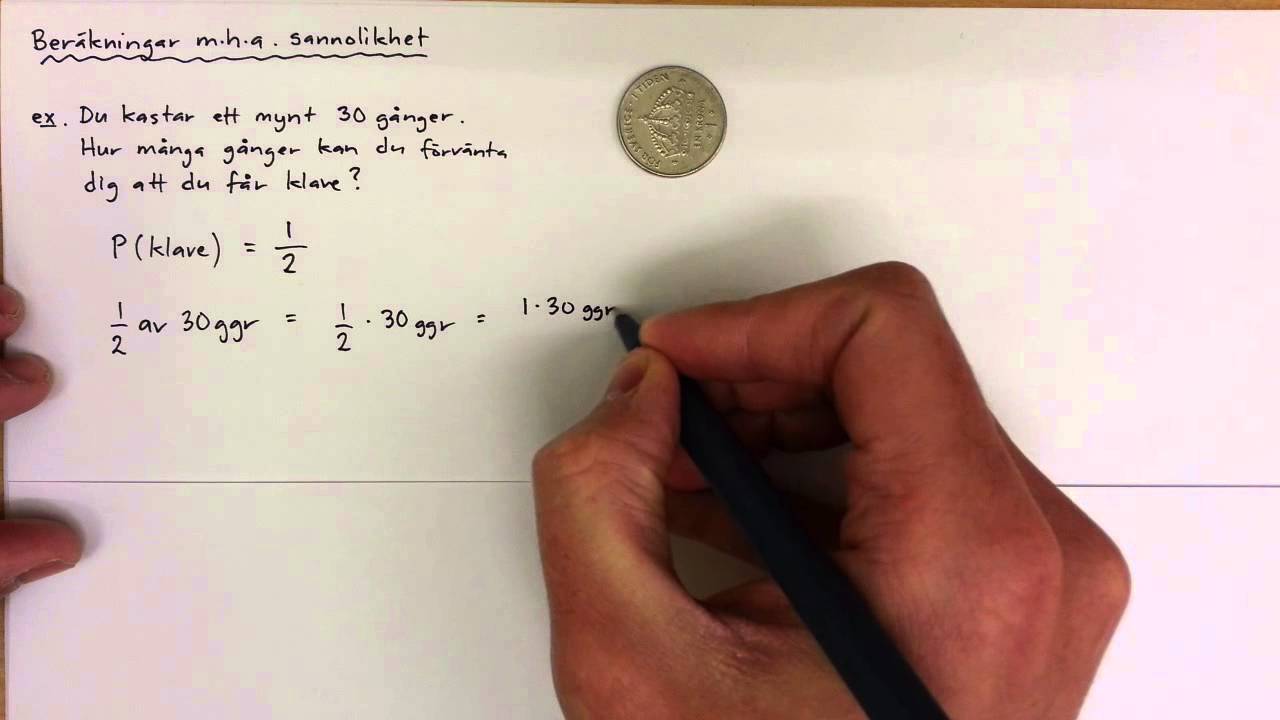 Beräkningar m.h.a. sannolikhet
ex. Du kastar ett mynt 30 gånger.
Hur många gånger kan du förvänta
dig att du får klave?
P(klave) = 1/2
1/2 av 30 ggr = 1/2 · 30 ggr = 1 · 30 ggr
FÖR SVERIGE - I TIDEN